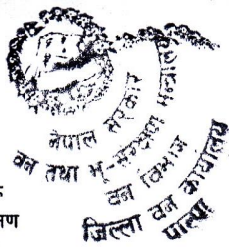 नेपाल सरकार
वन तथा भू-संरक्षण मन्त्रालय
वन विभाग
जिल्ला वन कार्यालय
पाल्पा
क्षण